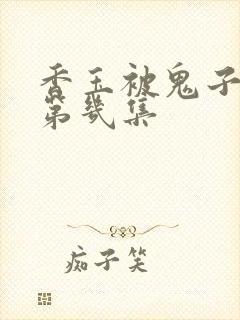 香玉被鬼子
第几集
痴子笑